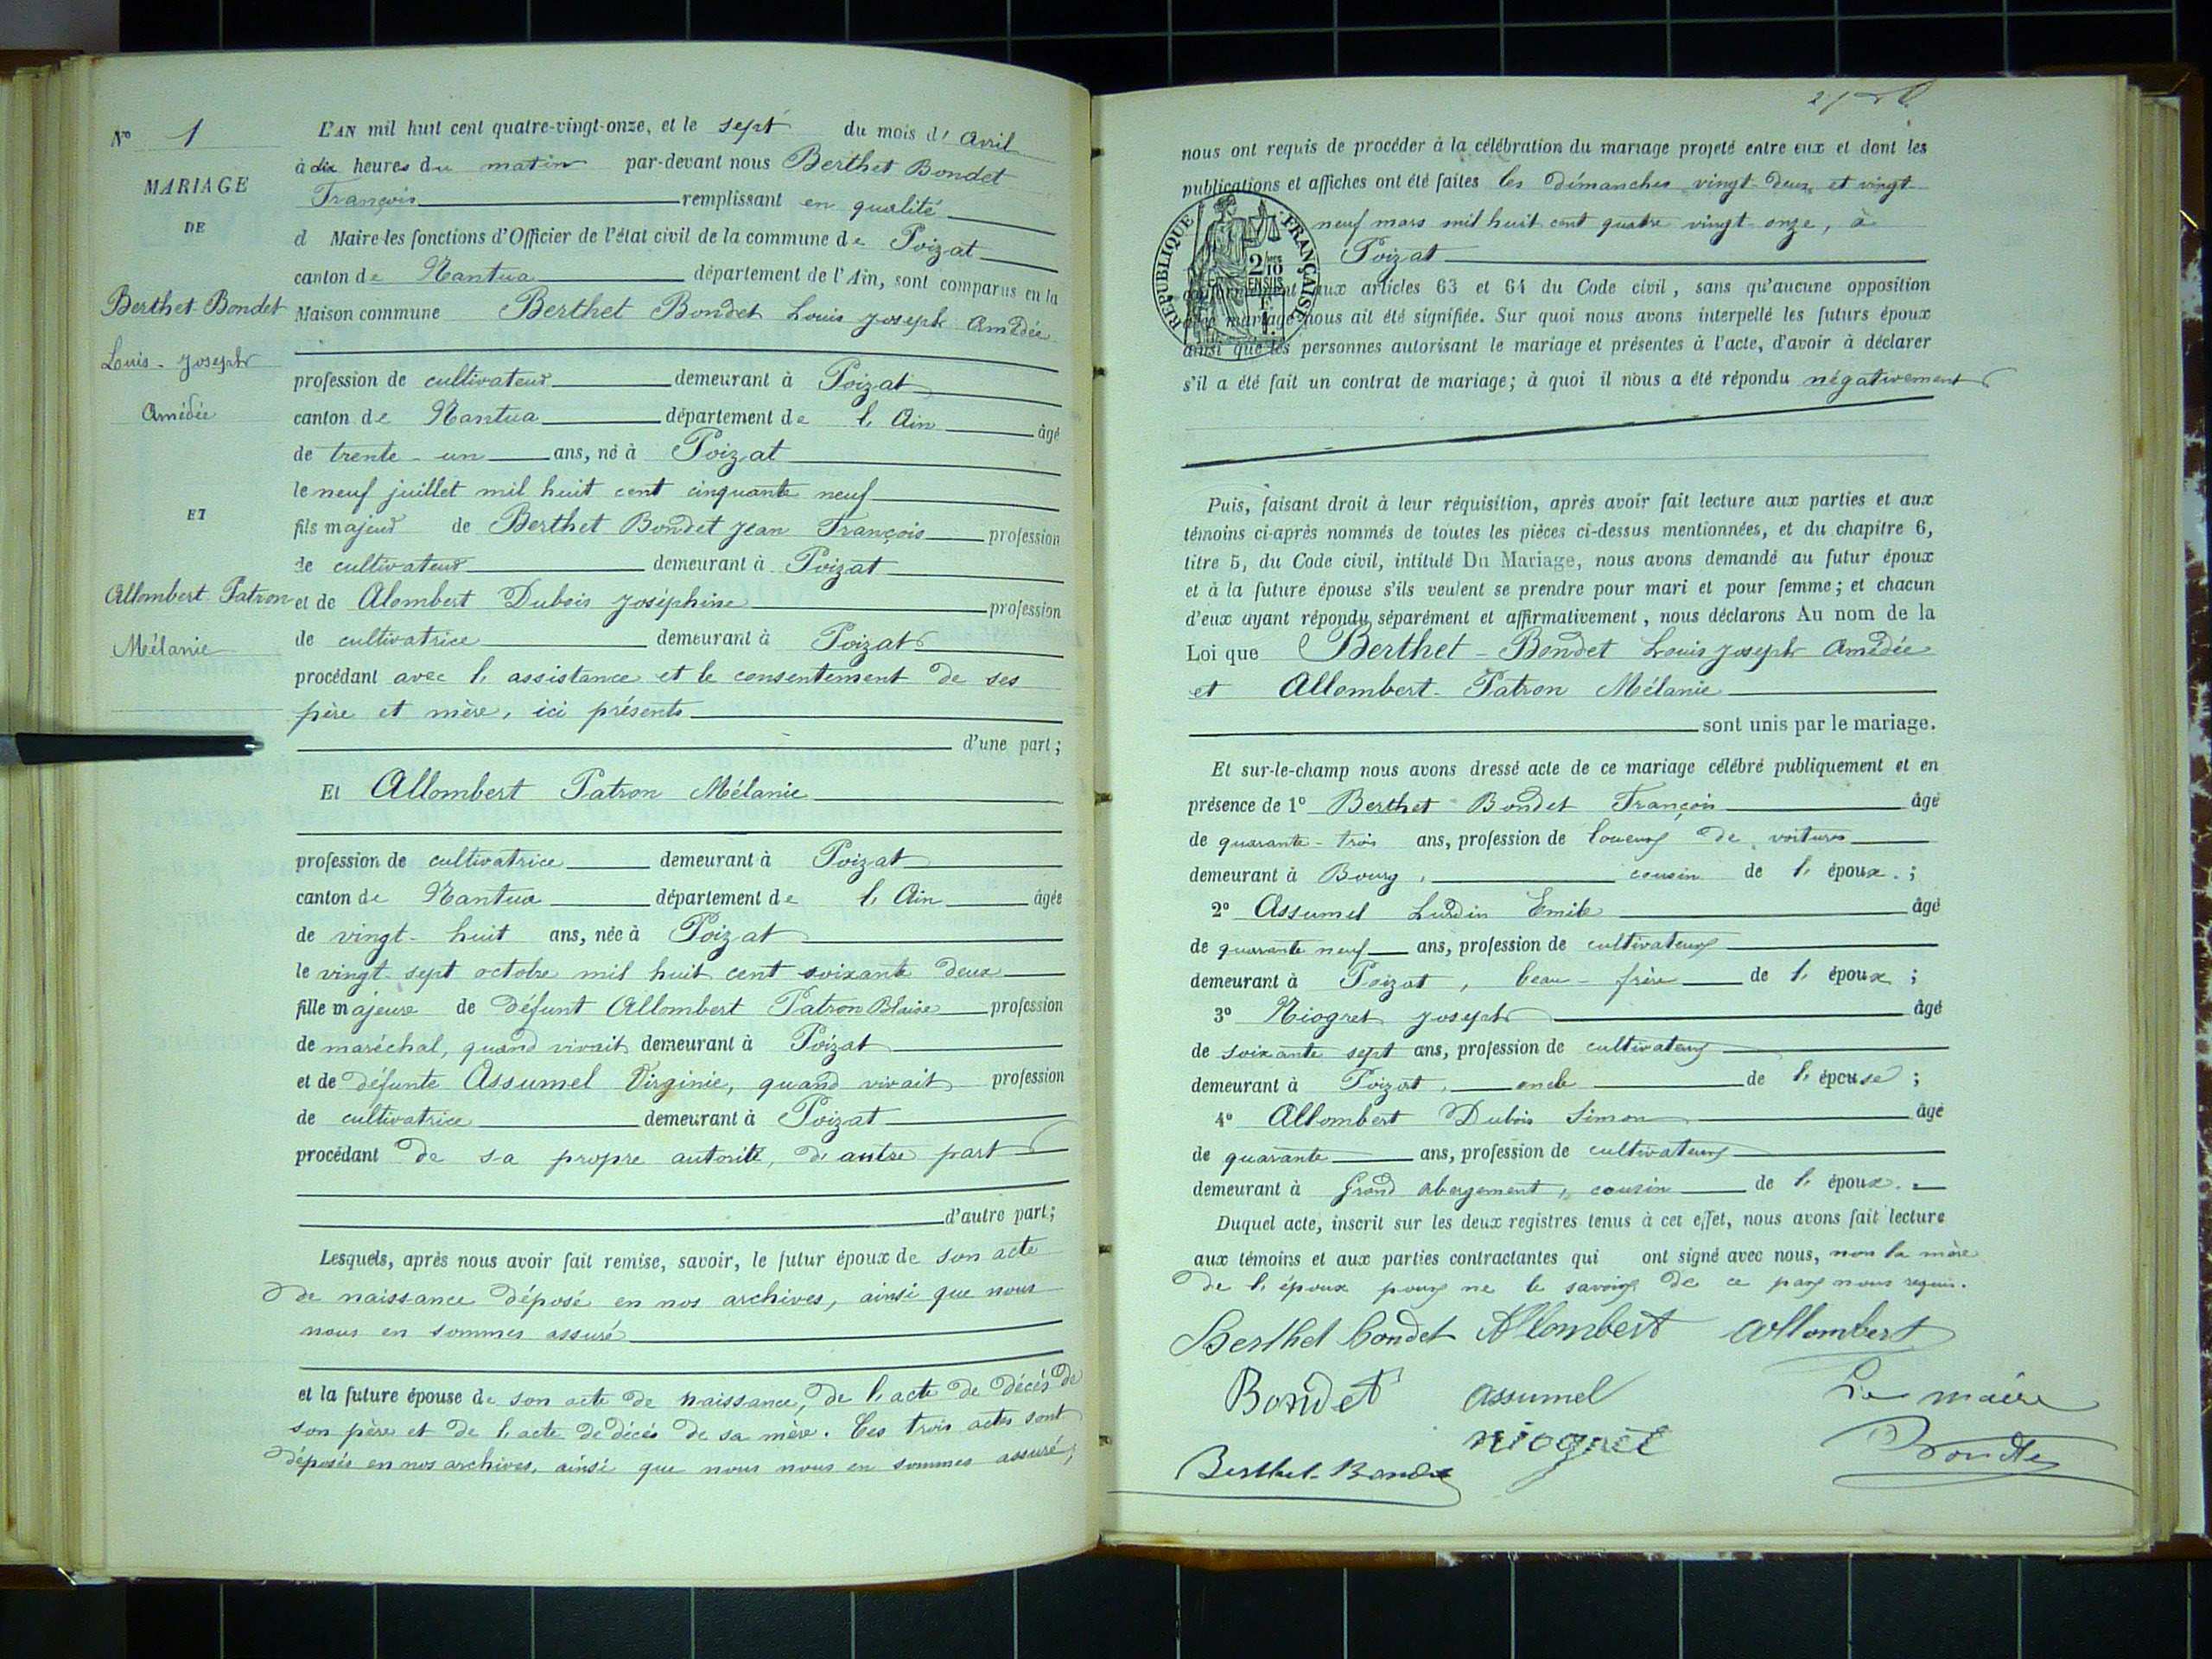 N° 1
MARIAGE
DE
Berthet Bondet
Louis-Joseph
Amédée
ET
Allombert Patron
Mélanie
L'AN mil huit cent quatre-vingt-onze, et le sept du mois d' Avril
à dix heures du matin par-devant nous Berthet Bondet
François remplissant en qualité
d Maire les fonctions d'Officier de l'état civil de la commune de Poizat
canton de Nantua département de l'Ain, sont comparus en la
Maison commune Berthet Bondet Louis Joseph Amédée
profession de cultivateur demeurant à Poizat
canton de Nantua département de l'Ain âgé
de trente-un ans, né à Poizat
le neuf juillet mil huit cent cinquante neuf
fils majeur de Berthet Bondet Jean François profession
de cultivateur demeurant à Poizat
et de Alombert Dubois Joséphine profession
de cultivatrice demeurant à Poizat
procédant avec l'assistance et le consentement de ses
père et mère, ici présents
d'une part;
Et Allombert Patron Mélanie
profession de cultivatrice demeurant à Poizat
canton de Nantua département de l'Ain âgée
de vingt-huit ans, née à Poizat
le vingt-sept octobre mil huit cent soixante deux
fille majeure de défunt Allombert Patron Blaise profession
de maréchal, quand vivait demeurant à Poizat
et de défunte Assumel Virginie, quand vivait profession
de cultivatrice demeurant à Poizat
procédant de sa propre autorité, d'autre part
d'autre part;
Lesquels, après nous avoir fait remise, savoir, le futur époux de son acte
de naissance déposé en nos archives, ainsi que nous
nous en sommes assuré
et la future épouse de son acte de naissance, de l'acte de décès de
son père et de l'acte de décès de sa mère. Ces trois actes sont
déposés en nos archives, ainsi que nous nous en sommes assuré;
nous ont requis de procéder à la célébration du mariage projeté entre eux et dont les
publications et affiches ont été faites les dimanches vingt-deux et vingt
neuf mars mil huit cent quatre vingt onze, à
Poizat
RÉPUBLIQUE FRANÇAISE
2/10 EN SUS
conformément aux articles 63 et 64 du Code civil, sans qu'aucune opposition
à ce mariage nous ait été signifiée. Sur quoi nous avons interpellé les futurs époux
ainsi que les personnes autorisant le mariage et présentes à l'acte, d'avoir à déclarer
s'il a été fait un contrat de mariage; à quoi il nous a été répondu négativement
Puis, faisant droit à leur réquisition, après avoir fait lecture aux parties et aux
témoins ci-après nommés de toutes les pièces ci-dessus mentionnées, et du chapitre 6,
titre 5, du Code civil, intitulé Du Mariage, nous avons demandé au futur époux
et à la future épouse s'ils veulent se prendre pour mari et pour femme; et chacun
d'eux ayant répondu séparément et affirmativement, nous déclarons Au nom de la
Loi que Berthet-Bondet Louis Joseph Amédée
et Allombert-Patron Mélanie
sont unis par le mariage.
Et sur-le-champ nous avons dressé acte de ce mariage célébré publiquement et en
présence de 1° Berthet Bondet François âgé
de quarante-trois ans, profession de loueur de voitures
demeurant à Bourg, cousin de l'époux.;
2° Assumel Lurdin Emile âgé
de quarante neuf ans, profession de cultivateur
demeurant à Poizat, beau-frère de l'époux;
3° Niogret Joseph âgé
de soixante sept ans, profession de cultivateur
demeurant à Poizat, oncle de l'épouse;
4° Allombert Dubois Simon âgé
de quarante ans, profession de cultivateur
demeurant à Grand Abergement, cousin de l'époux.
Duquel acte, inscrit sur les deux registres tenus à cet effet, nous avons fait lecture
aux témoins et aux parties contractantes qui ont signé avec nous, non la mère
de l'époux pour ne le savoir de ce par nous requis.
Berthet bondet Allombert Allombert
Bondet assumel Le maire
niogret Bondet
Berthet-Bondet